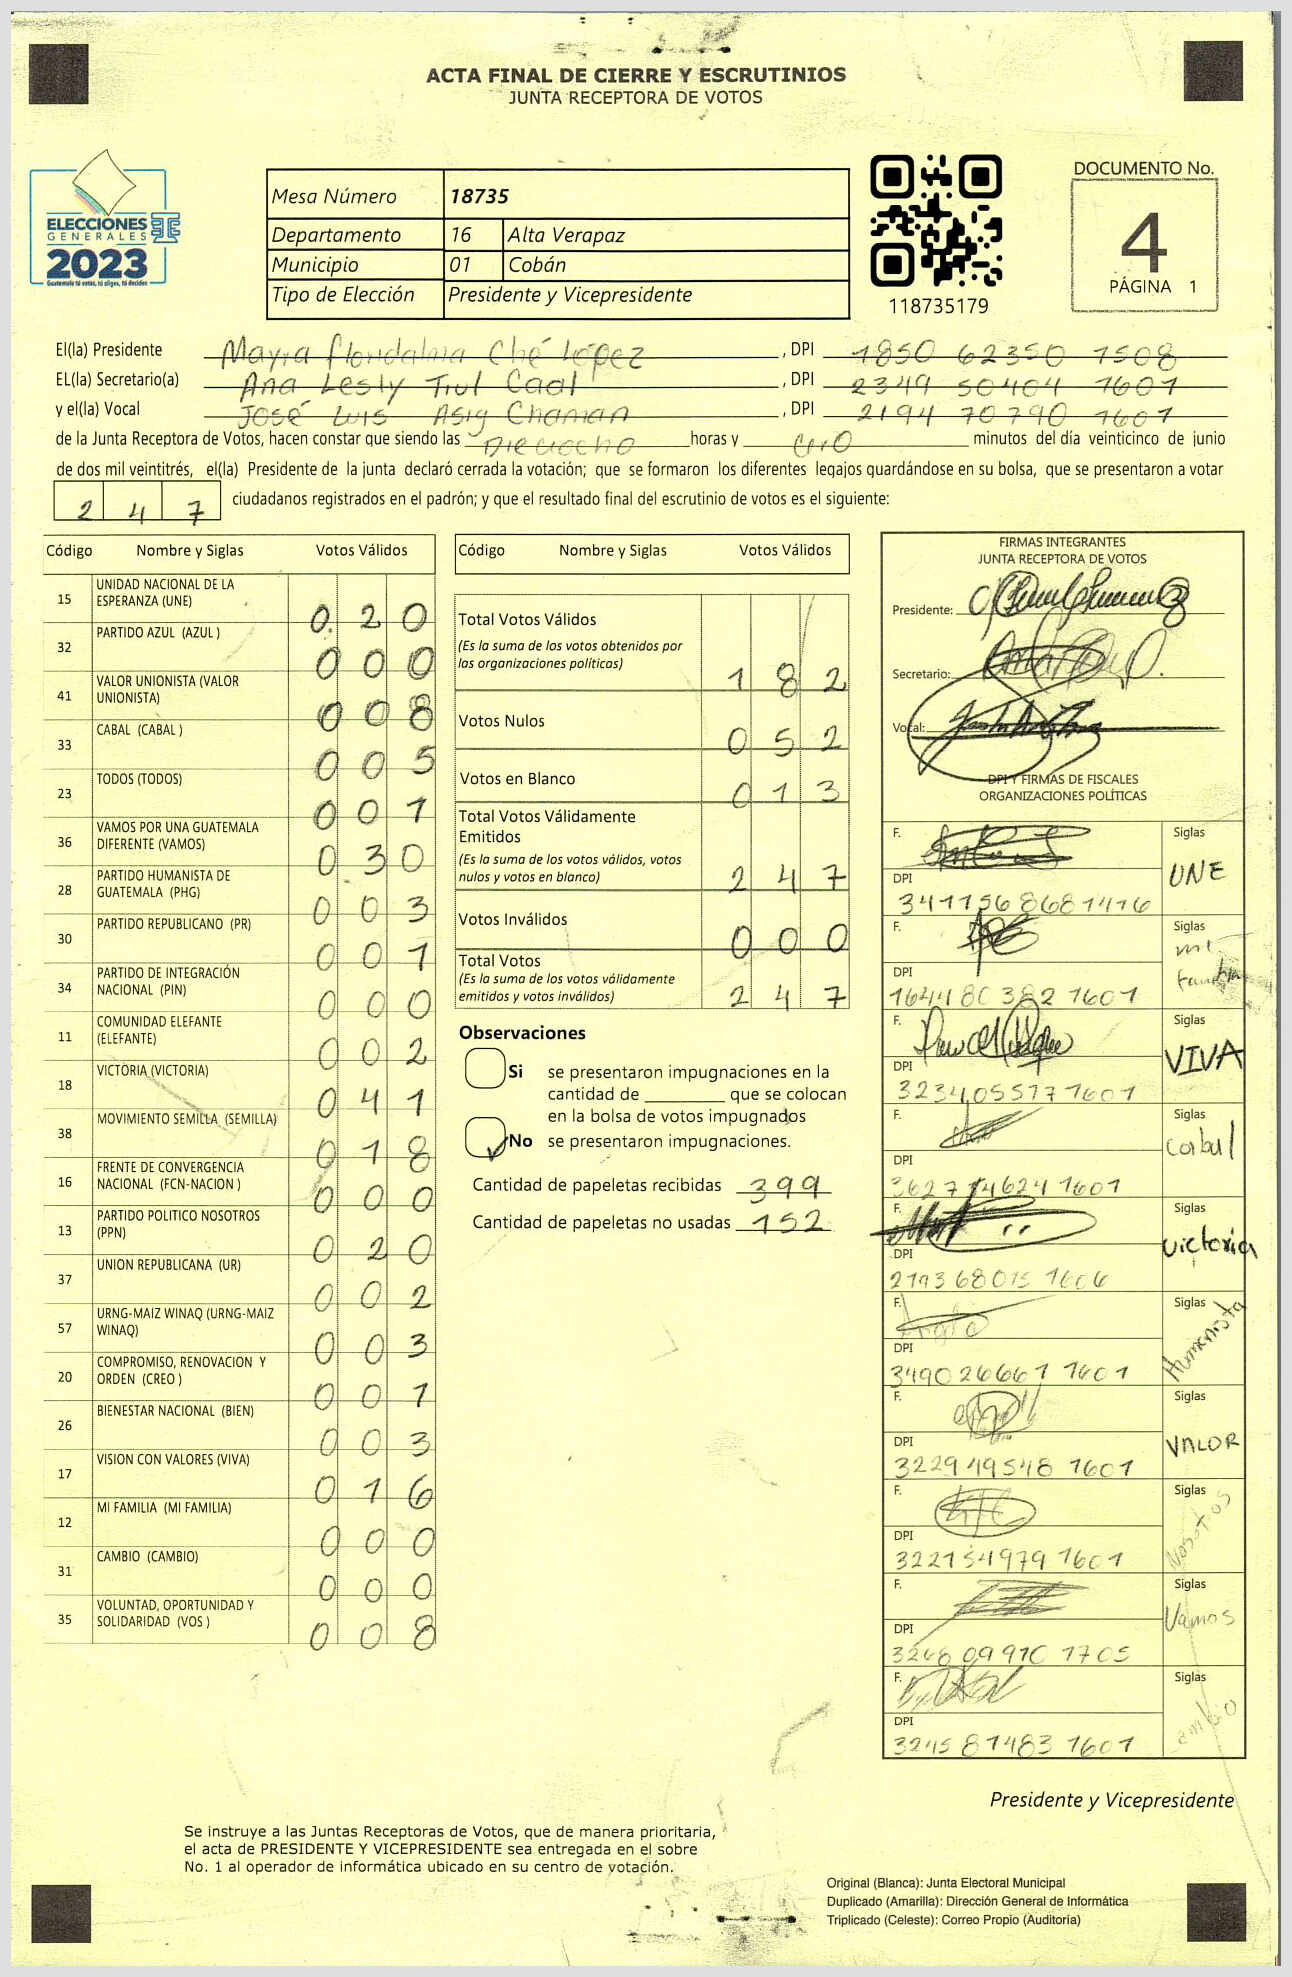 ACTA FINAL DE CIERRE Y ESCRUTINIOS
JUNTA RECEPTORA DE VOTOS
ELECCIONES
GENERALES
2023
Guatemala tú votas, tú eliges, tú decides
Mesa Número 18735
Departamento 16 Alta Verapaz
Municipio 01 Cobán
Tipo de Elección Presidente y Vicepresidente
118735179
DOCUMENTO No.
4
PÁGINA 1
El(la) Presidente Mayra Floridalma Ché López , DPI 1850 62350 1508
EL(la) Secretario(a) Ana Lesly Tiul Caal , DPI 2349 50404 1601
y el(la) Vocal José Luis Asig Chaman , DPI 2194 70790 1601
de la Junta Receptora de Votos, hacen constar que siendo las Dieciocho horas y cero minutos del día veinticinco de junio
de dos mil veintitrés, el(la) Presidente de la junta declaró cerrada la votación; que se formaron los diferentes legajos guardándose en su bolsa, que se presentaron a votar
247 ciudadanos registrados en el padrón; y que el resultado final del escrutinio de votos es el siguiente:
Código Nombre y Siglas Votos Válidos
15 UNIDAD NACIONAL DE LA ESPERANZA (UNE) 020
32 PARTIDO AZUL (AZUL ) 000
41 VALOR UNIONISTA (VALOR UNIONISTA) 008
33 CABAL (CABAL ) 005
23 TODOS (TODOS) 001
36 VAMOS POR UNA GUATEMALA DIFERENTE (VAMOS) 030
28 PARTIDO HUMANISTA DE GUATEMALA (PHG) 003
30 PARTIDO REPUBLICANO (PR) 001
34 PARTIDO DE INTEGRACIÓN NACIONAL (PIN) 000
11 COMUNIDAD ELEFANTE (ELEFANTE) 002
18 VICTORIA (VICTORIA) 041
38 MOVIMIENTO SEMILLA (SEMILLA) 018
16 FRENTE DE CONVERGENCIA NACIONAL (FCN-NACION ) 000
13 PARTIDO POLITICO NOSOTROS (PPN) 020
37 UNION REPUBLICANA (UR) 002
57 URNG-MAIZ WINAQ (URNG-MAIZ WINAQ) 003
20 COMPROMISO, RENOVACION Y ORDEN (CREO ) 001
26 BIENESTAR NACIONAL (BIEN) 003
17 VISION CON VALORES (VIVA) 016
12 MI FAMILIA (MI FAMILIA) 000
31 CAMBIO (CAMBIO) 000
35 VOLUNTAD, OPORTUNIDAD Y SOLIDARIDAD (VOS ) 008
Código Nombre y Siglas Votos Válidos
Total Votos Válidos 182
(Es la suma de los votos obtenidos por
las organizaciones políticas)
Votos Nulos 052
Votos en Blanco 013
Total Votos Válidamente
Emitidos 247
(Es la suma de los votos válidos, votos
nulos y votos en blanco)
Votos Inválidos 000
Total Votos 247
(Es la suma de los votos válidamente
emitidos y votos inválidos)
Observaciones
Si se presentaron impugnaciones en la
cantidad de ________ que se colocan
en la bolsa de votos impugnados
No se presentaron impugnaciones.
Cantidad de papeletas recibidas 399
Cantidad de papeletas no usadas 152
FIRMAS INTEGRANTES
JUNTA RECEPTORA DE VOTOS
Presidente:
Secretario:
Vocal:
DPI Y FIRMAS DE FISCALES
ORGANIZACIONES POLÍTICAS
F. Siglas UNE
DPI 3411568681416
F. Siglas mi
DPI 164480382 1601
F. Siglas VIVA
DPI 3234055771601
F. Siglas Cabal
DPI 3627146241601
F. Siglas Victoria
DPI 219368015 1606
F. Siglas Humanista
DPI 349026661 1601
F. Siglas VALOR
DPI 322949548 1601
F. Siglas Nosotros
DPI 322154979 1601
F. Siglas Vamos
DPI 324809910 1705
F. Siglas
DPI 324581483 1601
Presidente y Vicepresidente
Se instruye a las Juntas Receptoras de Votos, que de manera prioritaria,
el acta de PRESIDENTE Y VICEPRESIDENTE sea entregada en el sobre
No. 1 al operador de informática ubicado en su centro de votación.
Original (Blanca): Junta Electoral Municipal
Duplicado (Amarilla): Dirección General de Informática
Triplicado (Celeste): Correo Propio (Auditoría)